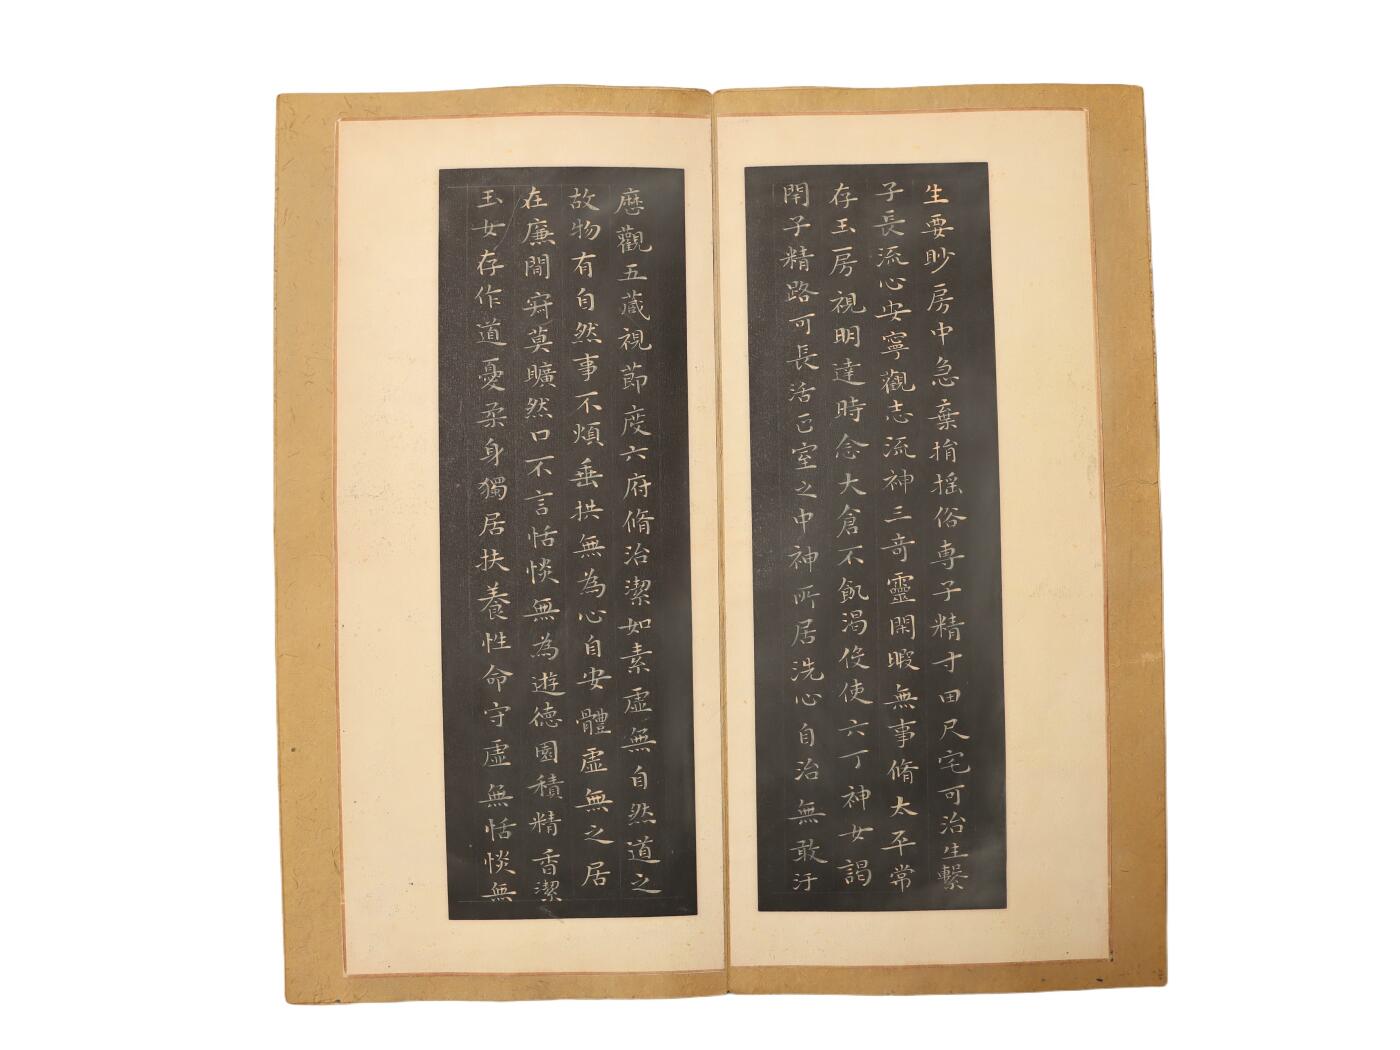 生要眇房中急棄捐揺俗専子精寸田尺宅可治生繫
子長流心安寧觀志流神三奇靈閑暇無事脩太平常
存玉房視明達時念大倉不飢渴伇使六丁神女謁
閇子精路可長活正室之中神所居洗心自治無敢汙
歴觀五蔵視節度六府脩治潔如素虛無自然道之
故物有自然事不煩垂拱無為心自安體虛無之居
在廉閒寂莫曠然口不言恬惔無為遊德園積精香潔
玉女存作道憂柔身獨居扶養性命守虛無恬惔無